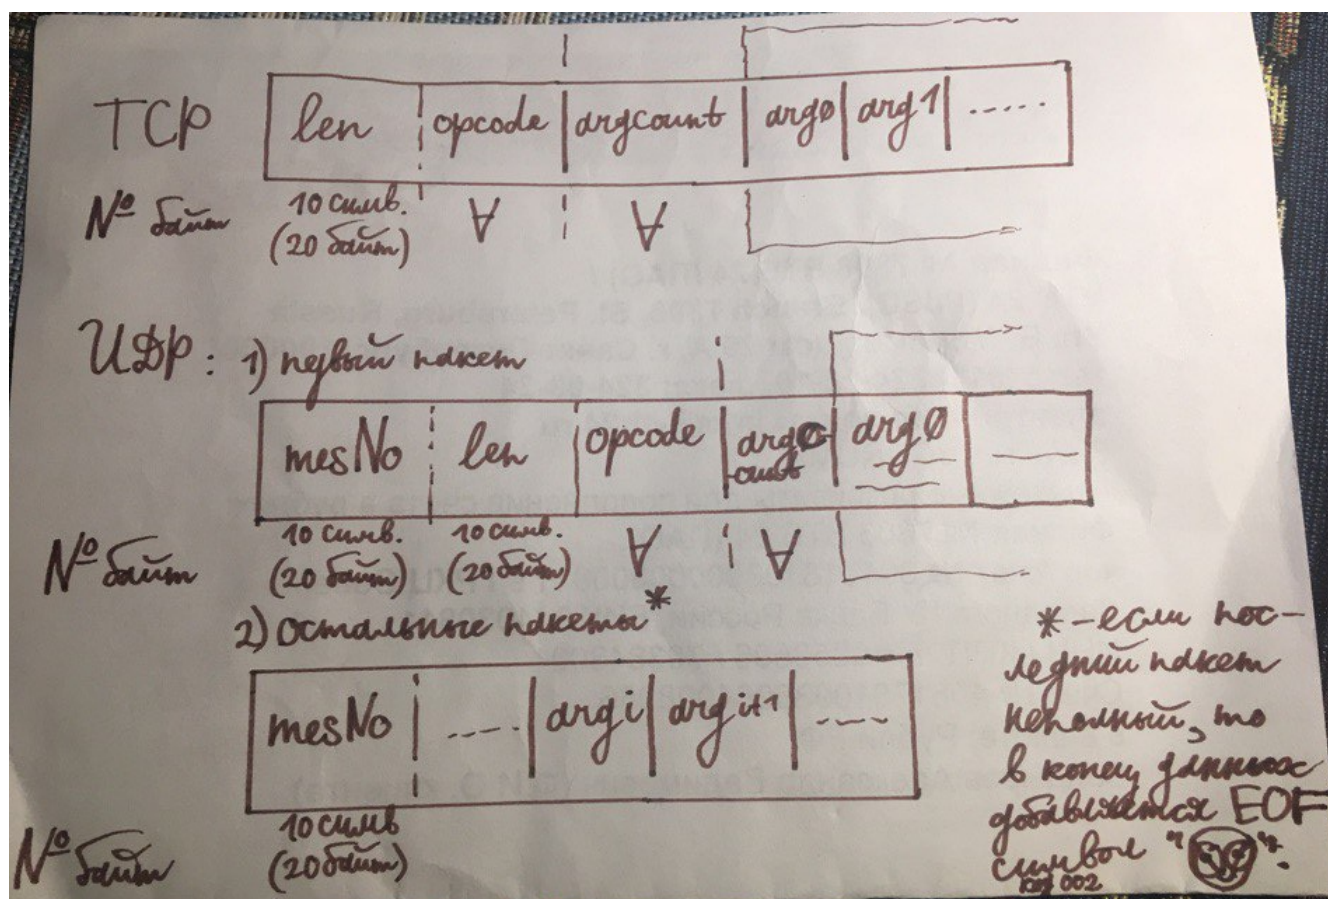 TCP len opcode argcount arg0 arg1 .....
№ байт 10 симв. ∀ ∀
(20 байт)
UDP: 1) первый пакет
mesNo len opcode argc arg0
-ount
№ байт 10 симв. 10 симв. ∀ ∀
(20 байт) (20 байт)
2) остальные пакеты*
mesNo ..... arg i arg i+1 ....
№ байт 10 симв
(20 байт)
* - если пос-
ледний пакет
неполный, то
в конец данных
добавляется EOF
символ " ".
002